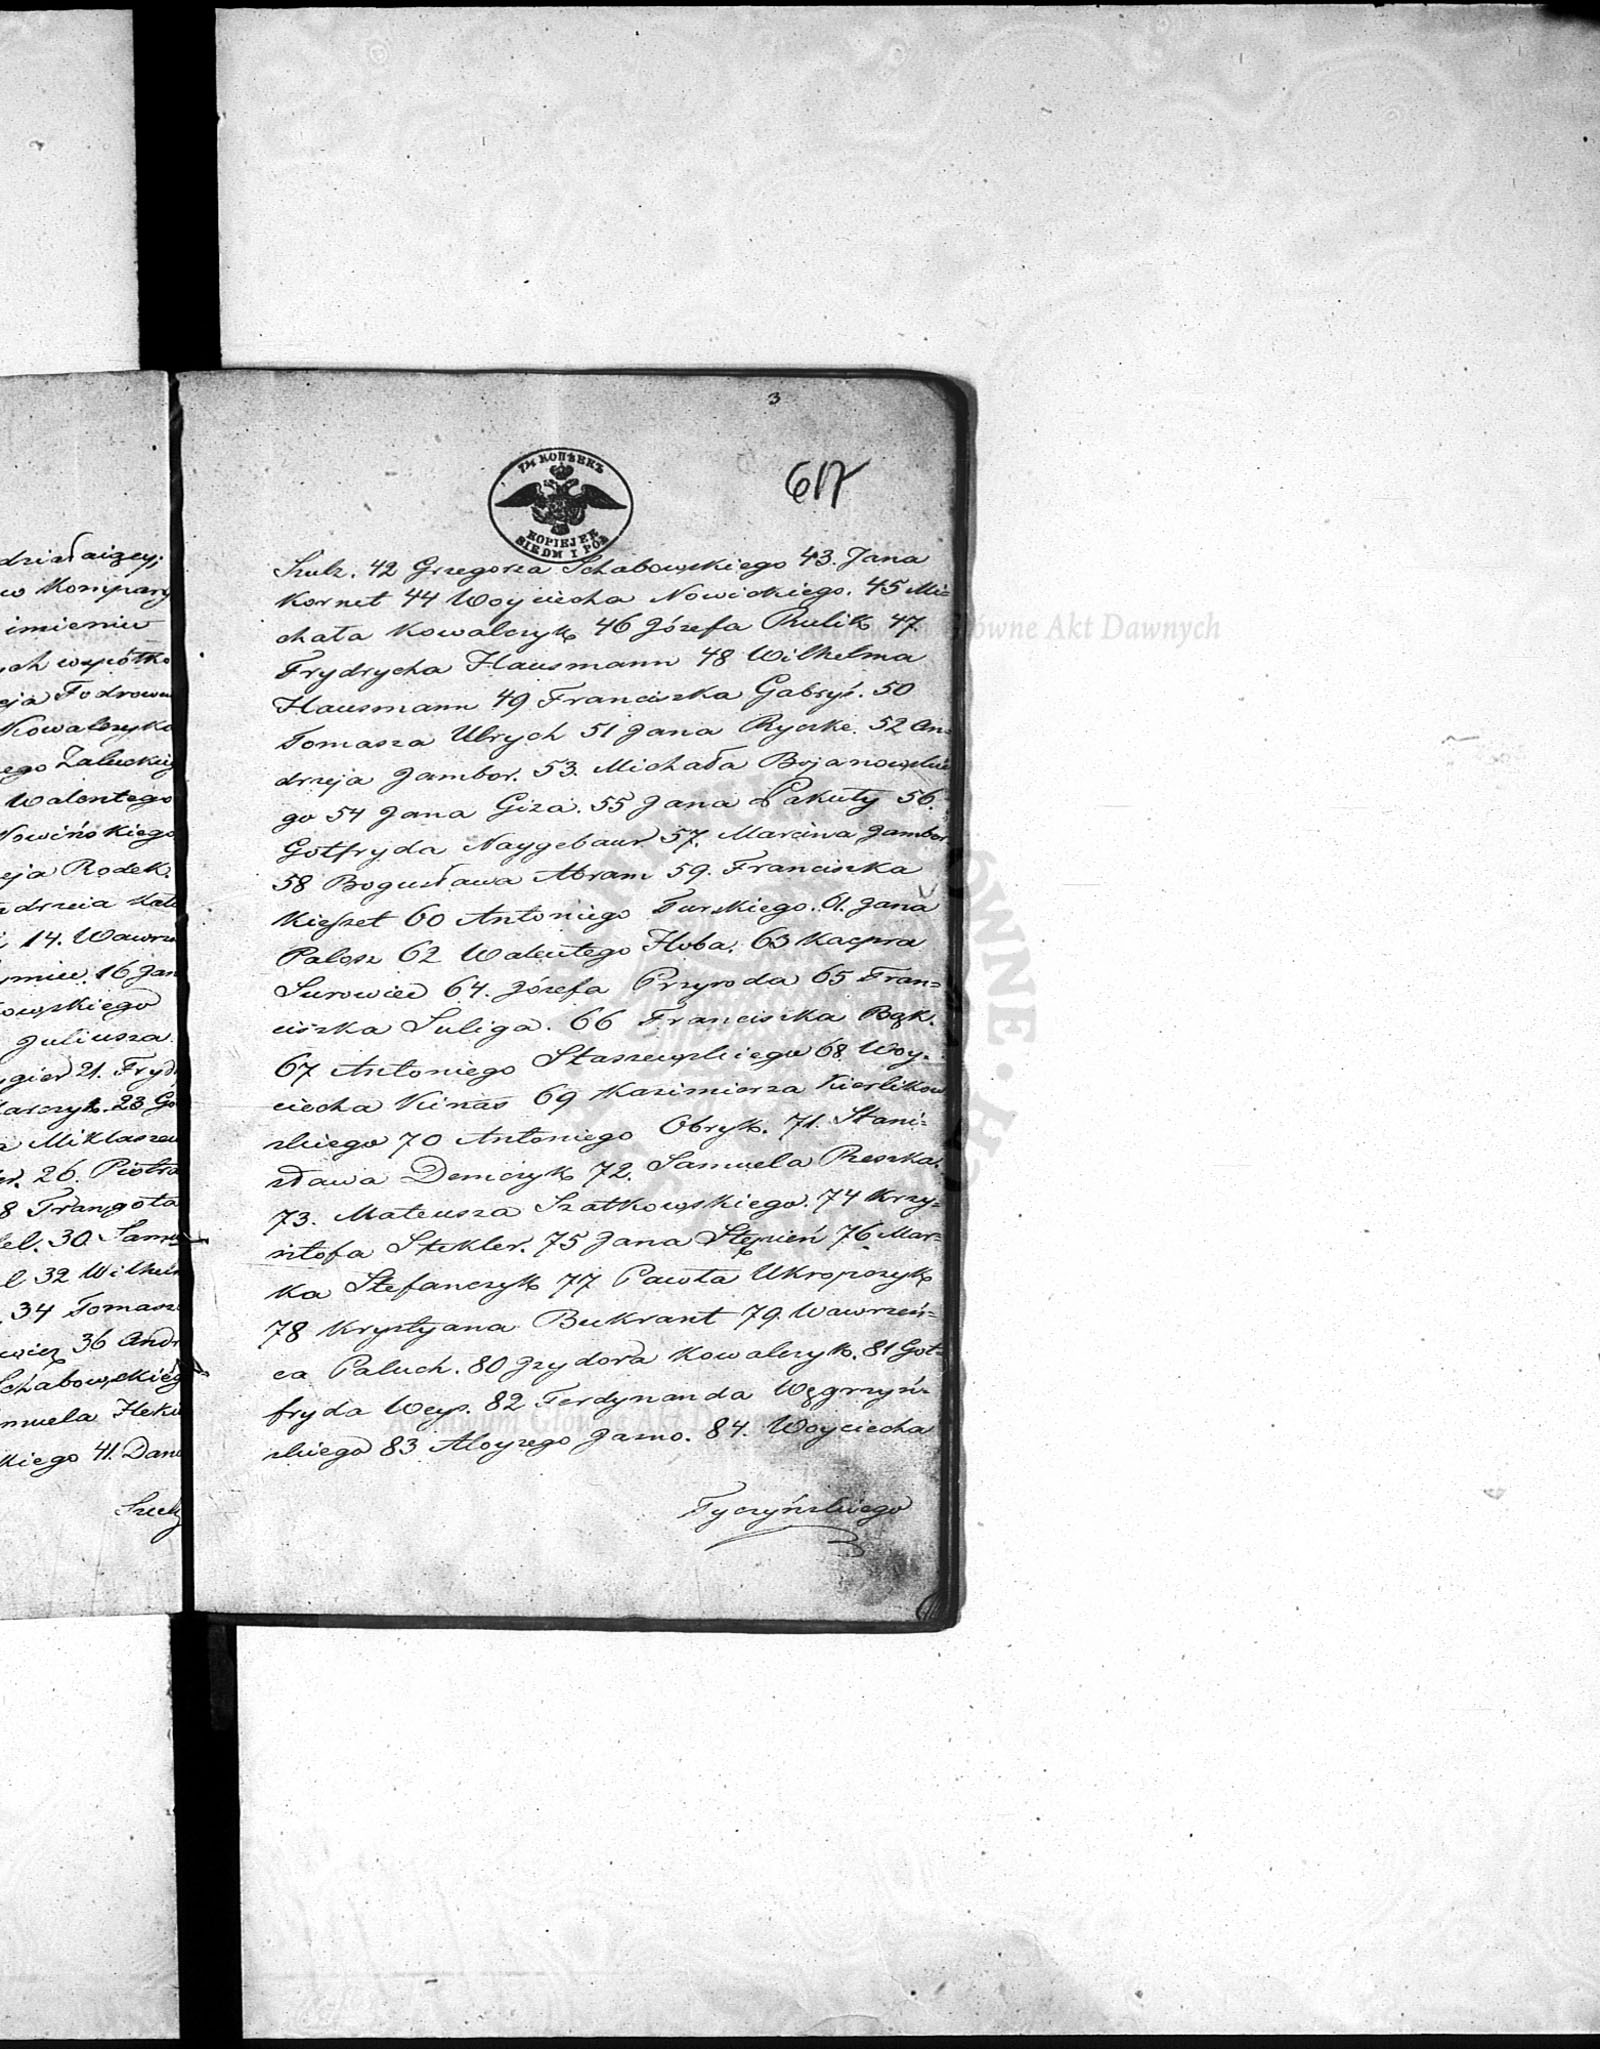 działaiącey
w Kompary
imieniu
ych wspótko
eja Fodrow
Kowalczyka
ego Załuckieg
Walentego
Nowińskiego
eja Rodek
ndrzeia
14. Wawrz
16 Jan
owskiego
Juliusza
gier 21. Fryd
arczyk. 23 Go
a Miklaszew
r. 26. Piotra
8 Trangota
el. 30. Samu
l 32 Wilhel
34 Tomasz
wicz 36 Andr
Schabowskieg
muela Heku
kiego 41. Dan
Szulz
3
617
7½ КОПѢЕКЪ
KOPIEJEK
SIEDM I PÓŁ
Szulz. 42 Grzegorza Schabowskiego 43. Jana
Kornet 44 Woyciecha Nowickiego. 45 Mi=
chała Kowalczyk 46 Józefa Rulik 47.
Frydrycha Hausmann 48 Wilhelma
Hausmann 49 Franciszka Gabryś. 50
Tomasza Ulrych 51 Jana Ryczke. 52 An=
drzeja Jambor. 53. Michała Bojanowskie
go 54 Jana Giza. 55 Jana Pakuły 56.
Gotfryda Naygebaur 57. Marcina Jambor
58 Bogusława Abram 59. Franciszka
Kieszet 60 Antoniego Turskiego. 61. Jana
Palosz 62 Walentego Hoba. 63 Kacpra
Surowiec 64. Józefa Przyroda 65 Fran=
ciszka Suliga. 66 Franciszka Bąk.
67 Antoniego Staszewskiego 68 Woy=
ciecha Kinas 69 Kazimierza Kierlikow
skiego 70 Antoniego Obryk. 71. Stani=
sława Demczyk 72. Samuela Reszka.
73. Mateusza Szatkowskiego. 74 Krzy=
sztofa Stekler. 75 Jana Stępień 76 Mar=
ka Stefanczyk 77 Pawła Ukropczyk
78 Krystyana Bukrant 79. Wawrzeń=
ca Paluch. 80 Jzydora Kowalczyk. 81 Got=
fryda Weys. 82 Ferdynanda Węgrzyń=
skiego 83 Aloyzego Jarno. 84. Woyciecha
Tyczyńskiego
Archiwum Główne Akt Dawnych
Archiwum Główne Akt Dawnych